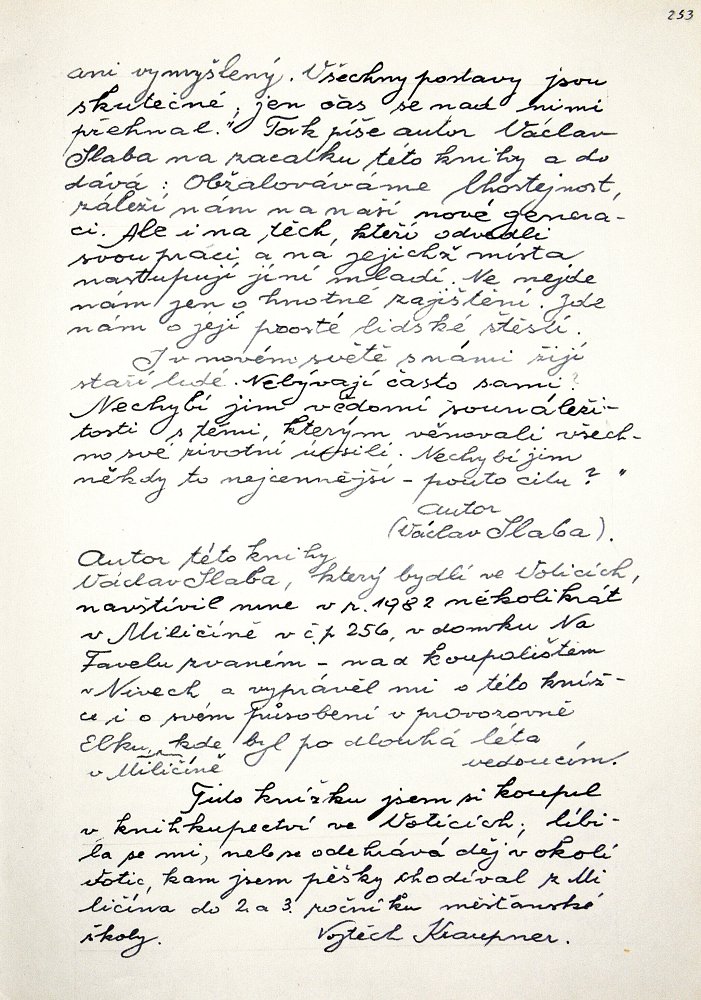 253
ani vymyšlený. Všechny postavy jsou
skutečné, jen čas se nad nimi
přehnal." Tak píše autor Václav
Slaba na začátku této knihy a do
dává: Obžalováváme lhostejnost,
záleží nám na naší nové genera-
ci. Ale i na těch, kteří odvedli
svou práci a na jejichž místa
nastupují jiní mladí. Ne nejde
nám jen o hmotné zajištění. Jde
nám o její prosté lidské štěstí.
I v novém světě s námi žijí
staří lidé. Nebývají často sami?
Nechybí jim vědomí sounáleži-
tosti s těmi, kterým věnovali všech-
no své životní úsilí. Nechybí jim
někdy to nejcennější - pouto citu? "
autor
(Václav Slaba).
Autor této knihy
Václav Slaba, který bydlí ve Voticích,
navštívil mne v r. 1982 několikrát
v Miličíně v č.p 256, v domku Na
Favelu zvaném - nad koupalištěm
v Nivech a vyprávěl mi o této kníž-
ce i o svém působení v provozovně
Elku, kde byl po dlouhá léta
v Miličíně vedoucím.
Tuto knížku jsem si koupil
v knihkupectví ve Voticích, líbi-
la se mi, nebse odehrává děj v okolí
Votic, kam jsem pěšky chodíval z Mi
ličína do 2. a 3. ročníku měšťanské
školy. Vojtěch Kraupner.